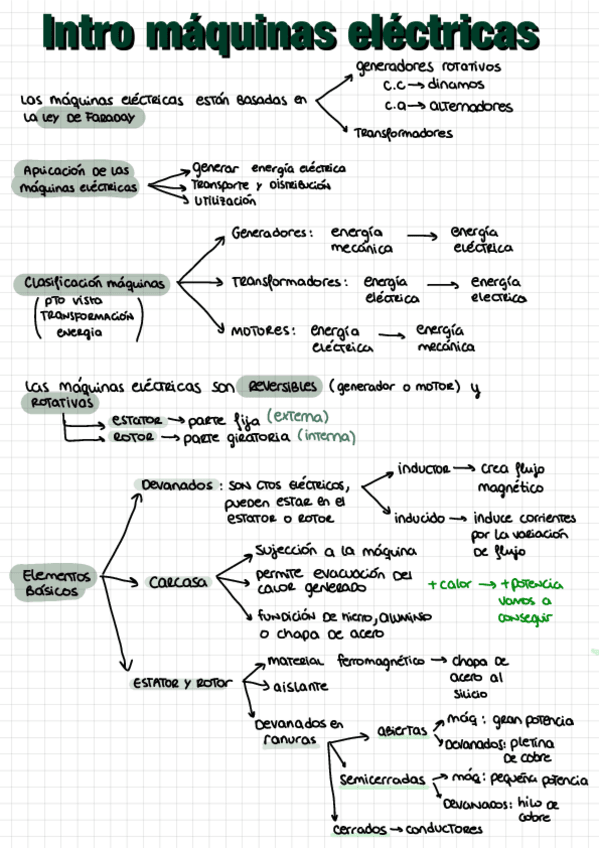 Intro máquinas eléctricas
generadores rotativos
c.c → dinamos
Las máquinas eléctricas están basadas en
c.a → alternadores
la ley de Faraday
Transformadores
Aplicación de las
máquinas eléctricas
generar energía eléctrica
Transporte y distribución
utilización
Generadores: energía → energía
mecánica eléctrica
Clasificación máquinas
(pto vista
transformación
energía)
Transformadores: energía → energía
eléctrica electrica
Motores: energía → energía
eléctrica mecánica
Las máquinas eléctricas son reversibles (generador o motor) y
rotativas
estator → parte fija (externa)
rotor → parte giratoria (interna)
Elementos
básicos
Devanados: son ctos eléctricos,
pueden estar en el
estator o rotor
inductor → crea flujo
magnético
inducido → induce corrientes
por la variación
de flujo
carcasa
sujección a la máquina
permite evacuación del
calor generado
+ calor → + potencia
vamos a
conseguir
fundición de hierro, aluminio
o chapa de acero
estator y rotor
material ferromagnético → chapa de
acero al
silicio
aislante
Devanados en
ranuras
abiertas
máq: gran potencia
devanados: pletina
de cobre
semicerradas
máq: pequeña potencia
devanados: hilo de
cobre
cerrados → conductores